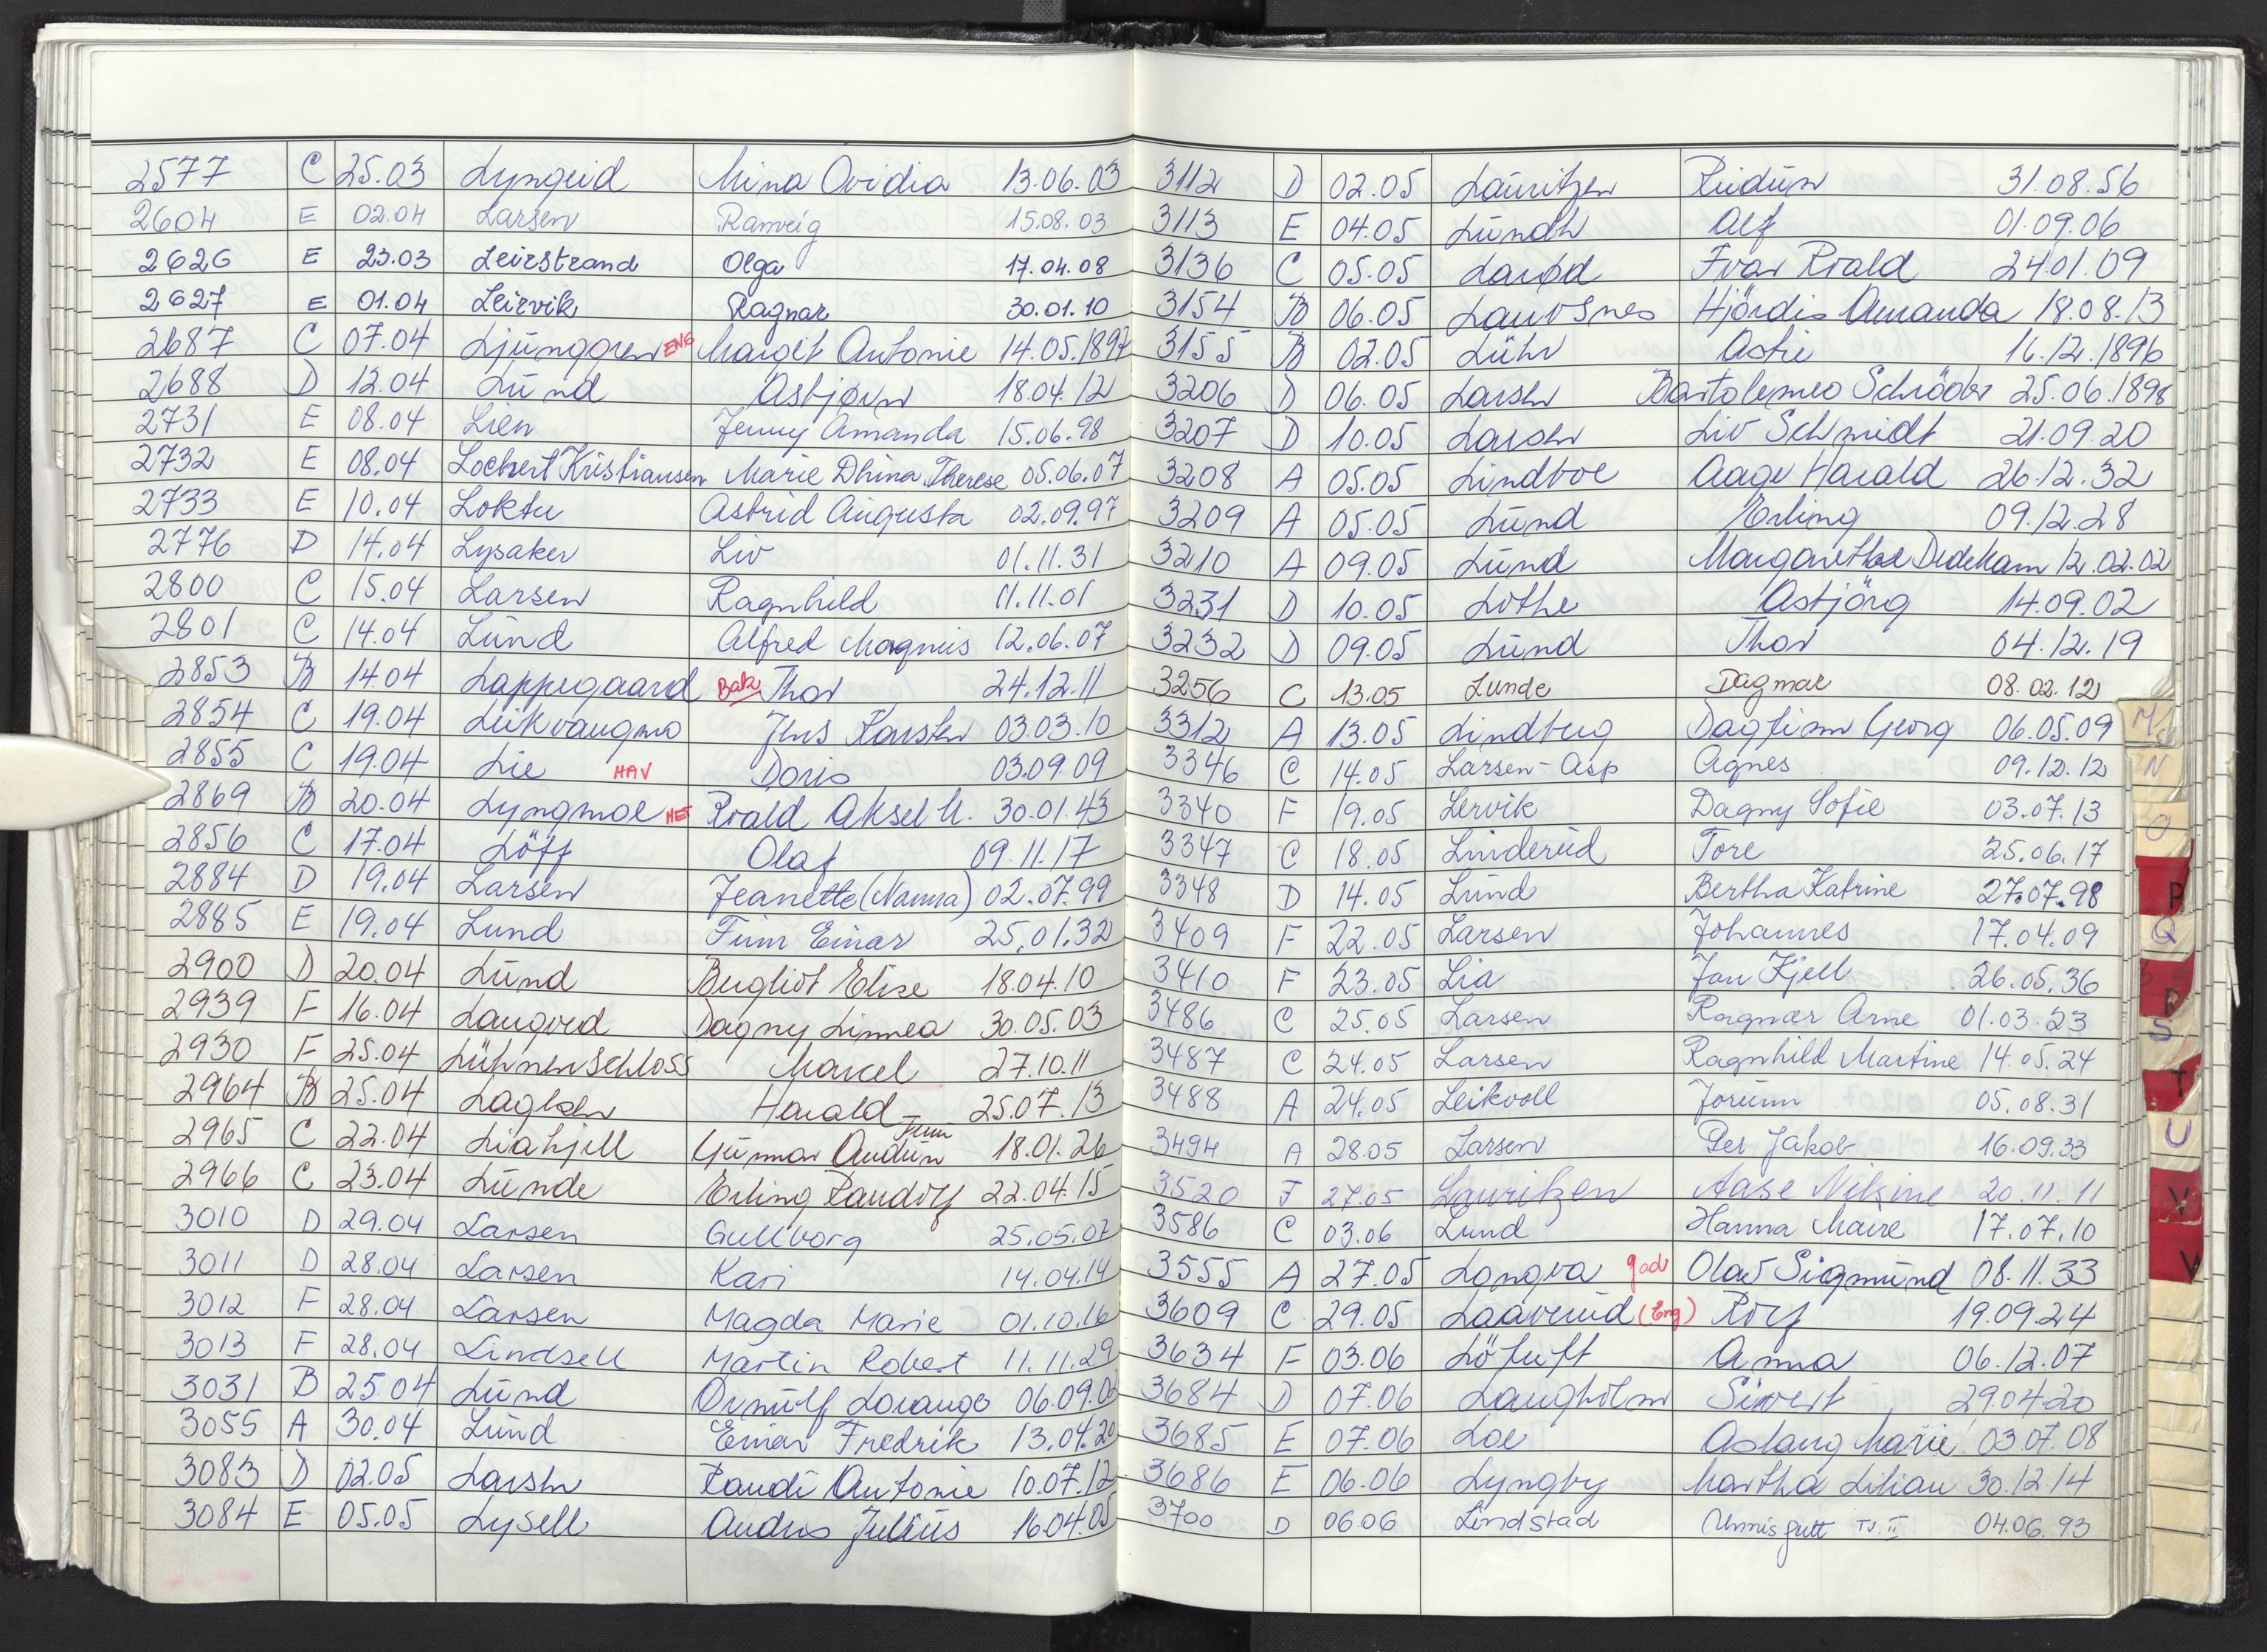 2577 C 25.03 Lyngeid Mina Ovidia 13.06.03
2604 E 02.04 Larsen Ranveig 15.08.03
2626 E 23.03 Leirstrand Olga 17.04.08
2627 E 01.04 Leirvik Ragnar 30.01.10
2687 C 07.04 Ljunggren ENG Margit Antonie 14.05.1897
2688 D 12.04 Lund Asbjørn 18.04.12
2731 E 08.04 Lien Jenny Amanda 15.06.98
2732 E 08.04 Lochert Kristiansen Marie Dhina Therese 05.06.07
2733 E 10.04 Loktu Astrid Augusta 02.09.97
2776 D 14.04 Lysaker Liv 01.11.31
2800 C 15.04 Larsen Ragnhild 11.11.01
2801 C 14.04 Lund Alfred Magnus 12.06.07
2853 B 14.04 Lappegaard Bak Thor 24.12.11
2854 C 19.04 Leikvangmo Jens Karsten 03.03.10
2855 C 19.04 Lie HAV Doris 03.09.09
2869 B 20.04 Lyngmoe HES Roald Aksel M. 30.01.43
2856 C 17.04 Löff Olaf 09.11.17
2884 D 19.04 Larsen Jeanette (Nanna) 02.07.99
2885 E 19.04 Lund Finn Einar 25.01.32
2900 D 20.04 Lund Bergliot Elise 18.04.10
2939 F 16.04 Langerd Dagny Linnea 30.05.03
2930 F 25.04 Lühnenschloss Marcel 27.10.11
2964 B 25.04 Lagesen Harald 25.07.13
2965 C 22.04 Liahjell Gunnar Audun Finn 18.01.26
2966 C 23.04 Lunde Erling Randolf 22.04.15
3010 D 29.04 Larsen Gullborg 25.05.07
3011 D 28.04 Larsen Kari 14.04.14
3012 F 28.04 Larsen Magda Marie 01.10.16
3013 F 28.04 Lindsell Martin Robert 11.11.29
3031 B 25.04 Lund Ørnulf Lorange 06.09.06
3055 A 30.04 Lund Einar Fredrik 13.04.20
3083 D 02.05 Larsen Randi Antonie 10.07.12
3084 E 05.05 Lysell Anders Julius 16.04.05
3112 D 02.05 Lauritzen Reidun 31.08.56
3113 E 04.05 Lundh Alf 01.09.06
3136 C 05.05 Larød Ivar Roald 24.01.09
3154 B 06.05 Lauvsnes Hjördis Amanda 18.08.13
3155 B 02.05 Lühr Astri 16.12.1896
3206 D 06.05 Larsen Bartolemeo Schröder 25.06.1898
3207 D 10.05 Larsen Liv Schmidt 21.09.20
3208 A 05.05 Lindboe Aage Harald 26.12.32
3209 A 05.05 Lund Erling 09.12.28
3210 A 09.05 Lund Margarethe Dedekam 12.02.02
3231 D 10.05 Lothe Asbjörg 14.09.02
3232 D 09.05 Lund Thor 04.12.19
3256 C 13.05 Lunde Dagmar 08.02.12
3312 A 13.05 Lindberg Dagfinn Georg 06.05.09
3346 C 14.05 Larsen-Asp Agnes 09.12.12
3340 F 19.05 Lervik Dagny Sofie 03.07.13
3347 C 18.05 Linderud Tore 25.06.17
3348 D 14.05 Lund Bertha Katrine 27.07.98
3409 F 22.05 Larsen Johannes 17.04.09
3410 F 23.05 Lia Jan Kjell 26.05.36
3486 C 25.05 Larsen Ragnar Arne 01.03.23
3487 C 24.05 Larsen Ragnhild Martine 14.05.24
3488 A 24.05 Leikvoll Jorunn 05.08.31
3494 A 28.05 Larsen Per Jakob 16.09.33
3520 F 27.05 Lauritzen Aase Nilsine 20.11.11
3586 C 03.06 Lund Hanna Marie 17.07.10
3555 A 27.05 Longva gad Olav Sigmund 08.11.33
3609 C 29.05 Laaverud (Eng) Rolf 19.09.24
3634 F 03.06 Löfuft Anna 06.12.07
3684 D 07.06 Langholm Sivert 29.04.20
3685 E 07.06 Loe Aslaug Marie 03.07.08
3686 E 06.06 Lyngby Martha Lilian 30.12.14
3700 D 06.06 Lindstad Unnis gutt Tv. II 04.06.93
M
N
O
P
Q
R
S
T
U
V